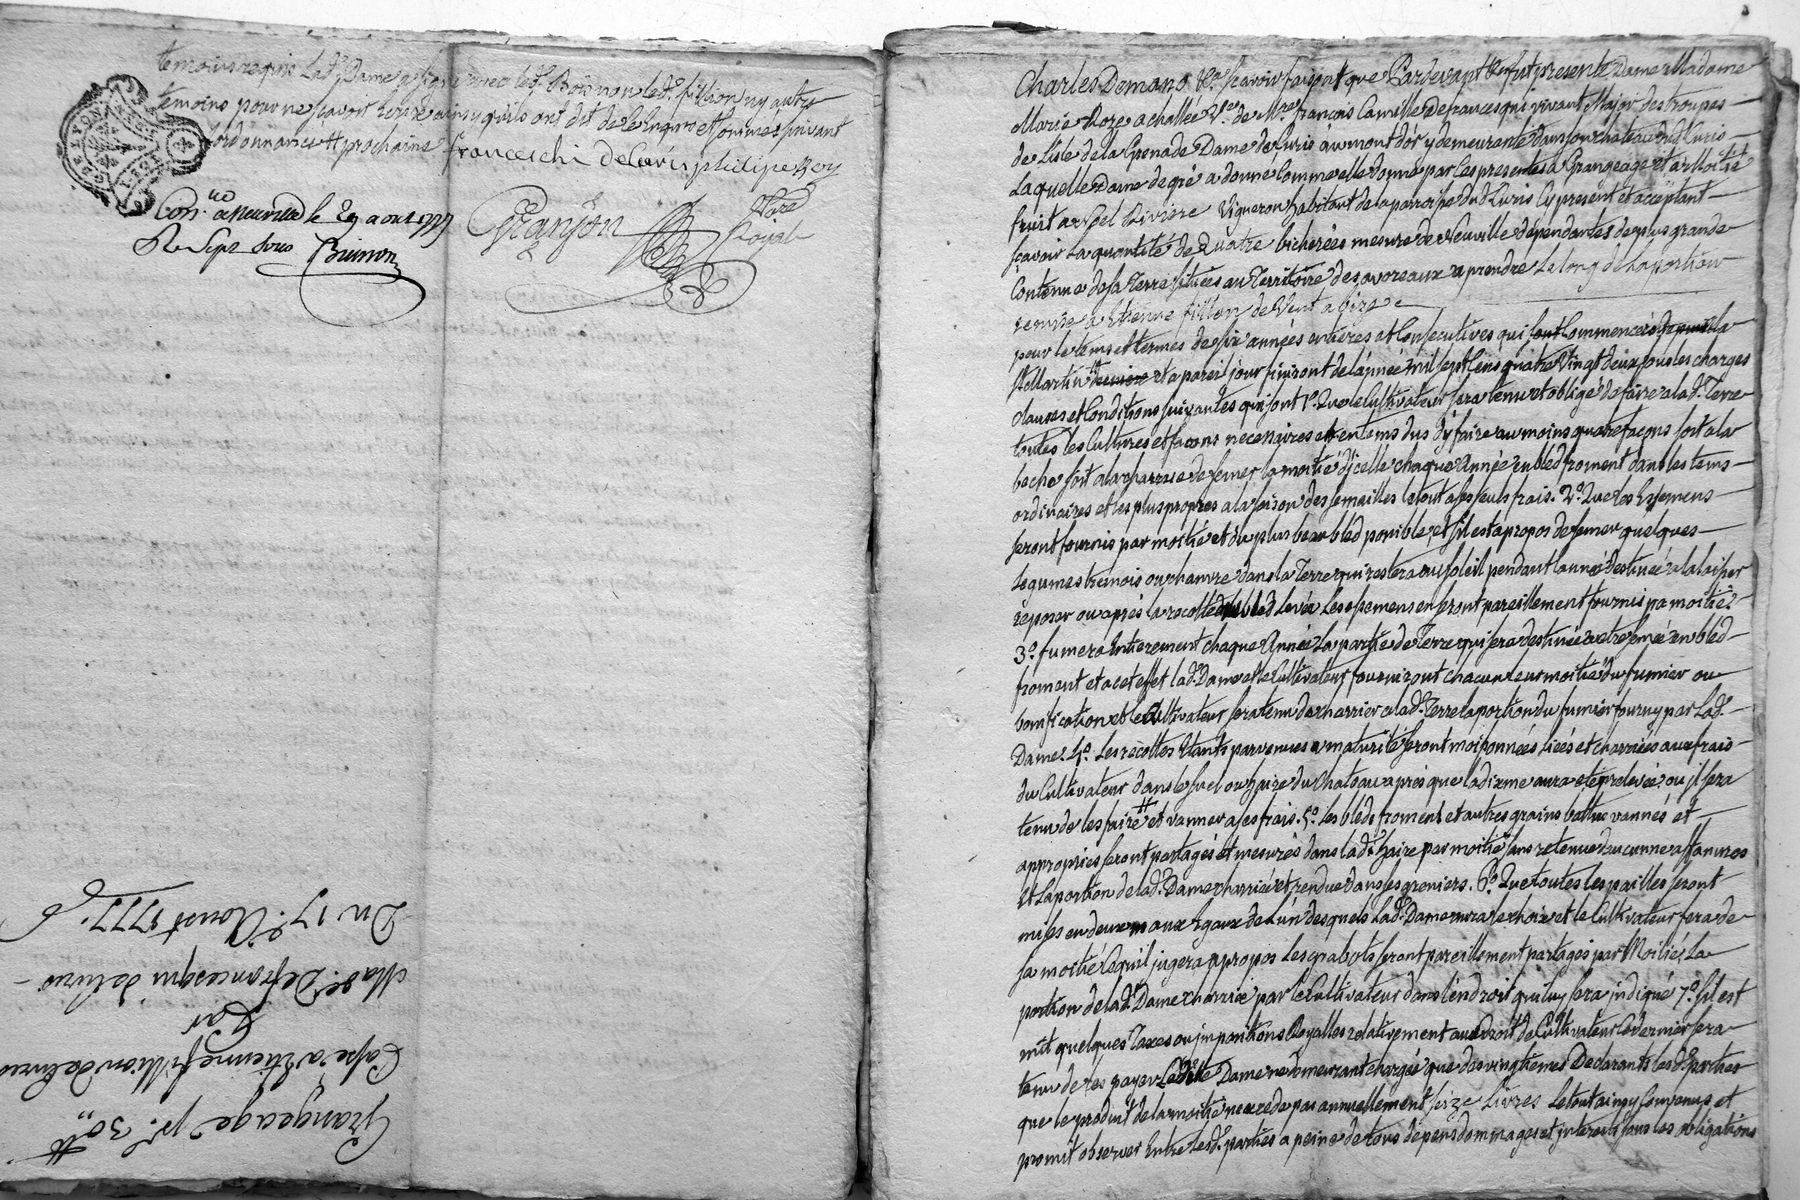 temoins requis Lad.e Dame a signé avec led. Boisson led. fillion ny autre
temoins pour ne sçavoir ecrire ainsy qu'ils ont dit de ce enquis et sommés suivant
l'ordonnance # prochaine
franceschi de Curis philipe Rey
GEN LYON
Con.lé a neuville le 29 aout 1777
Re Sept sous Brunon
Granjon
No.re Royal
Du 17.e Aoust 1777.
Mad.e De francesqui de Curis
Par
Passé a Etienne fillion de Curis
Grangeage p.r 30.tt
Charles Demano sçavoir faisont que Pardevant fut presente Dame Madame
Marie Roze achallée V.e de M.re françois Camille Defrancesqui vivant Major des troupes
de L'isle de la Grenade Dame de Curis au mont d'or y demeurante dans son chateau dud. Curis
Laquelle Dame de gré a donné comme elle donne par les presentes a Grangeage et a Moitié
fruit a Rivière Vigneron habitant de la parroisse dud. Curis Cy present et acceptant
sçavoir La quantité de Quatre bicherées mesure de Neuville dépendantes de plus grande
Contenue de sa Terre situées au Territoire des avoreaux a prendre Le long de La portion
remise a Etienne fillion de Vent a bize
pour le tems et termes de six années entieres et Consecutives qui sont Commencées depuis la
S.t Martin derniere et a pareil jour finiront de l'année mil sept Cens quatre Vingt deux sous les charges
clauses et Conditions suivantes qui sont 1.o Que le Cultivateur sera tenu et obligé de faire a lad. Terre
toutes les Cultures et façons necessaires et en tems dus d'y faire au moins quatre façons soit a la
beche soit a la charrue de semer la moitié d'jcelle chaque Année en bled froment dans les tems
ordinaires et les plus propres a la saison des semailles le tout a ses seuls frais. 2.o Que les Essemens
seront fournis par moitié et du plus beau bled possible, et s'il est a propos de semer quelques
Legumes tremois ou chanvre dans la Terre qui restera au soleil pendant l'année destinée a la laisser
reposer ou après la recolte du bled levée Les essemens en seront pareillement fournis pa moitié.
3.o fumera Entierement chaque Année La partie de Terre qui sera destinée a etre semée en bled
froment et a cet effet lad. Dame et le Cultivateur fourniront chacun leur moitié du fumier ou
bonification et le Cultivateur sera tenu de charrier a lad. Terre la portion du fumier fourny par Lad.
Dame. 4.o Les recoltes Etants parvenues a maturité seront moissonnées liées et charriées aux frais
du Cultivateur dans le suel ou haire du Chateau après que la dixme aura eté prelevée ou jl sera
tenu de les faire # et vanner a ses frais. 5.o les bleds froment et autres grains battus vannés et
appropriés seront partagés et mesurés dans lad. haire par moitié sans retenue d'aucunne affanures
Et La portion de lad. Dame charriée et rendue dans ses greniers. 6.o Que toutes les pailles seront
mises en deux maux Egaux de L'un desquels Lad. Dame aura le choix et le Cultivateur fera de
sa moitié Ce quil jugera a propos Les grabots seront pareillement partagés par Moitiés La
portion de lad. Dame charriée par le Cultivateur dans l'endroit qui luy sera jndiqué 7.o s'il est
mit quelques Taxes ou jmpositions Royalles relativement au Droit de Cultivateur Ce dernier sera
tenu de les payer Ladite Dame ne demeurant chargée que des vingtiemes Declarants les d. parties
que le produit de la moitié n'excede pas annuellement seize Livres Le tout ainsy Convenus et
promit observer Entre les d. parties a peine de tous depens dommages et jnterets sous les obligations